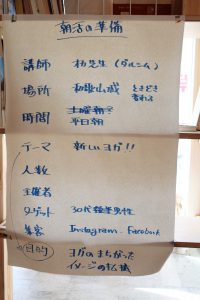 朝活の準備
講師 杉先生(ダルシム)
場所 和歌山城 ときどき
変わる
時間 土曜朝?
平日朝
テーマ 新しいヨガ!!
人数
主催者
ターゲット 30代 男性
集客 Instagram・Facebook
目的 ヨガのまちがった
イメージの払拭